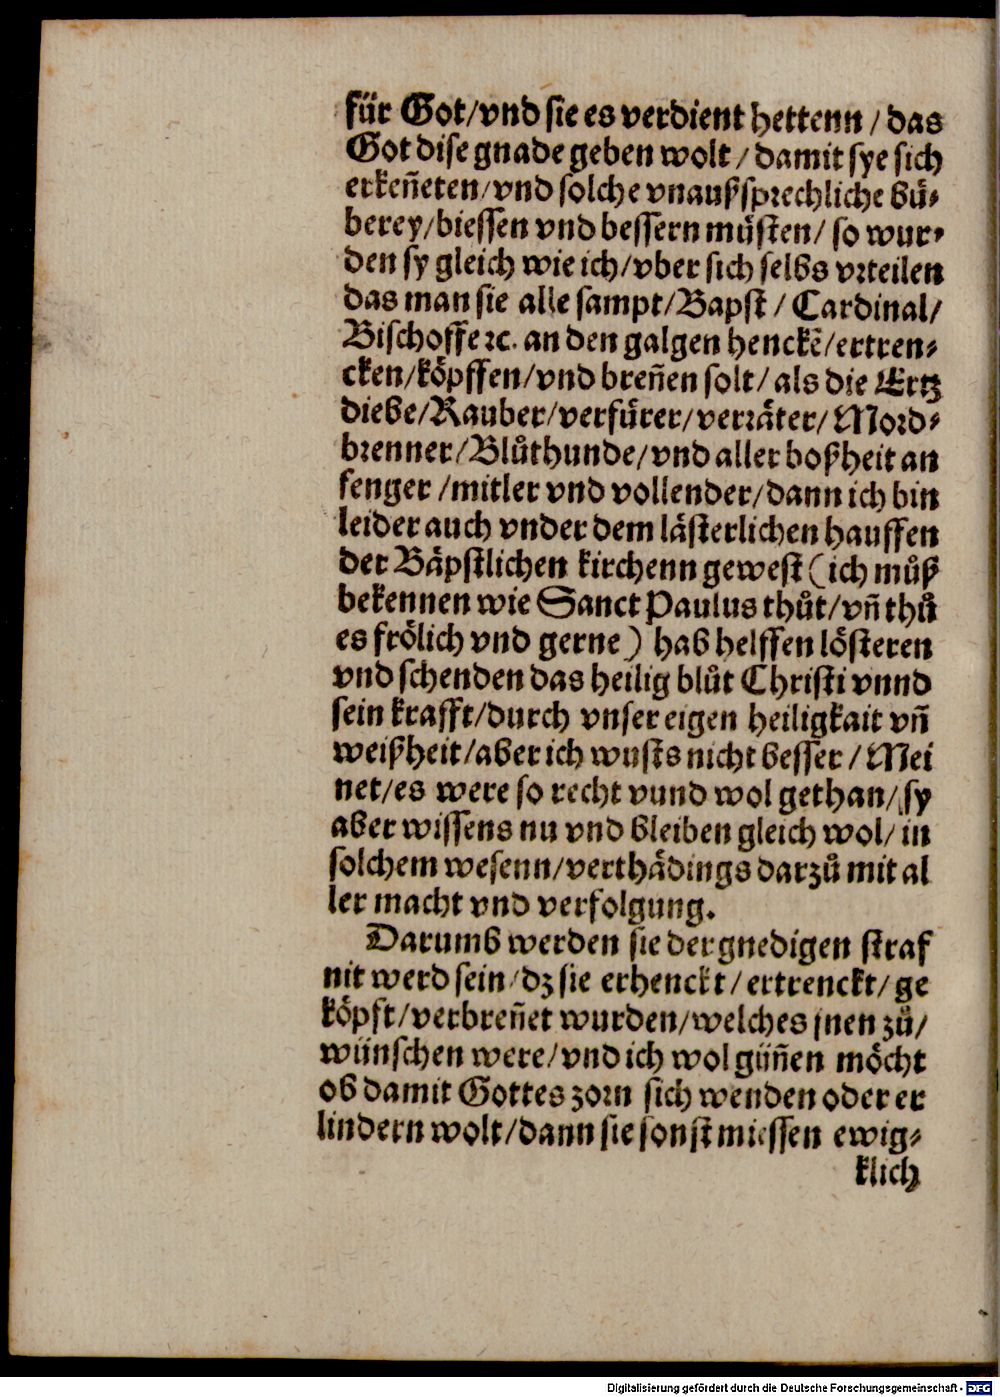 für Got/vnd sie es verdient hettenn / das
Got dise gnade geben wolt / damit sye sich
erkeñeten/vnd solche vnaußsprechliche bü-
berey/biessen vnd bessern müsten/ so wur-
den sy gleich wie ich/vber sich selbs vrteilen
das man sie alle sampt/Bapst / Cardinal/
Bischoffe ꝛc. an den galgen henckẽ/ertren-
cken/köpffen/vnd breñen solt/ als die Ertz
diebe/Rauber/verfürer/verräter/ Mord-
brenner/Blůthunde/vnd aller boßheit an
fenger /mitler vnd vollender/dann ich bin
leider auch vnder dem lästerlichen hauffen
der Bäpstlichen kirchenn gewest (ich můß
bekennen wie Sanct Paulus thůt/vñ thů
es frölich vnd gerne) hab helffen lösteren
vnd schenden das heilig blůt Christi vnnd
sein krafft/durch vnser eigen heiligkait vñ
weißheit/aber ich wusts nicht besser / Mei
net/es were so recht vund wol gethan/ sy
aber wissens nu vnd bleiben gleich wol/ in
solchem wesenn/verthädings darzů mit al
ler macht vnd verfolgung.
Darumb werden sie der gnedigen straf
nit werd sein/dz sie erhenckt/ ertrenckt/ ge
köpft/verbreñet wurden/welches jnen zů/
wünschen were/vnd ich wol güñen möcht
ob damit Gottes zorn sich wenden oder er
lindern wolt/dann sie sonst miessen ewig-
klich
Digitalisierung gefördert durch die Deutsche Forschungsgemeinschaft - DFG